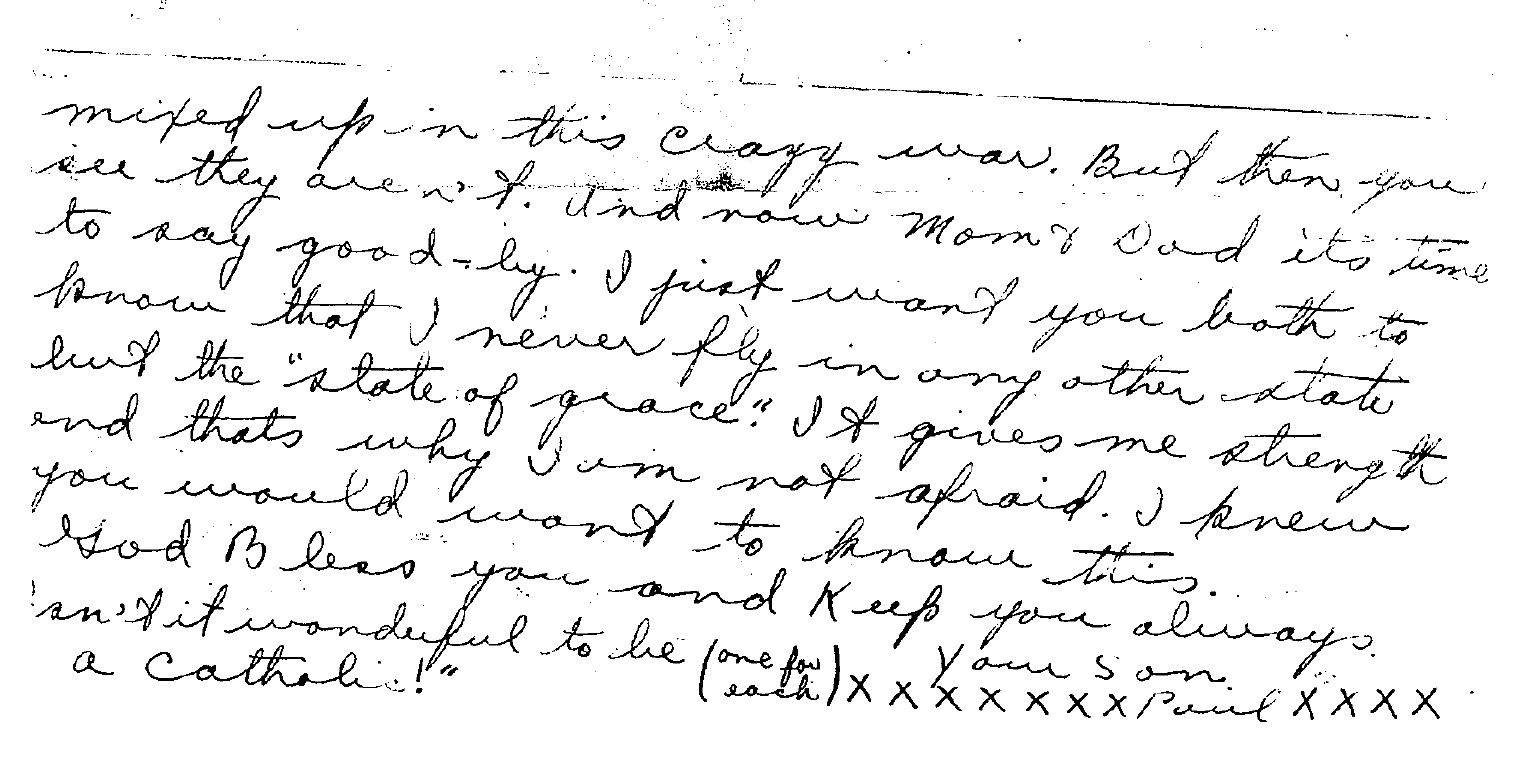 mixed up in this crazy war. But then you
see they aren't. And now Mom & Dad it's time
to say good-by. I just want you both to
know that I never fly in any other state
but the "state of grace." It gives me strength
and thats why I am not afraid. I knew
you would want to know this.
God Bless you and Keep you always.
Isn't it wonderful to be (one for each) Your Son
a Catholic!" x x x x x x x Paul x x x x